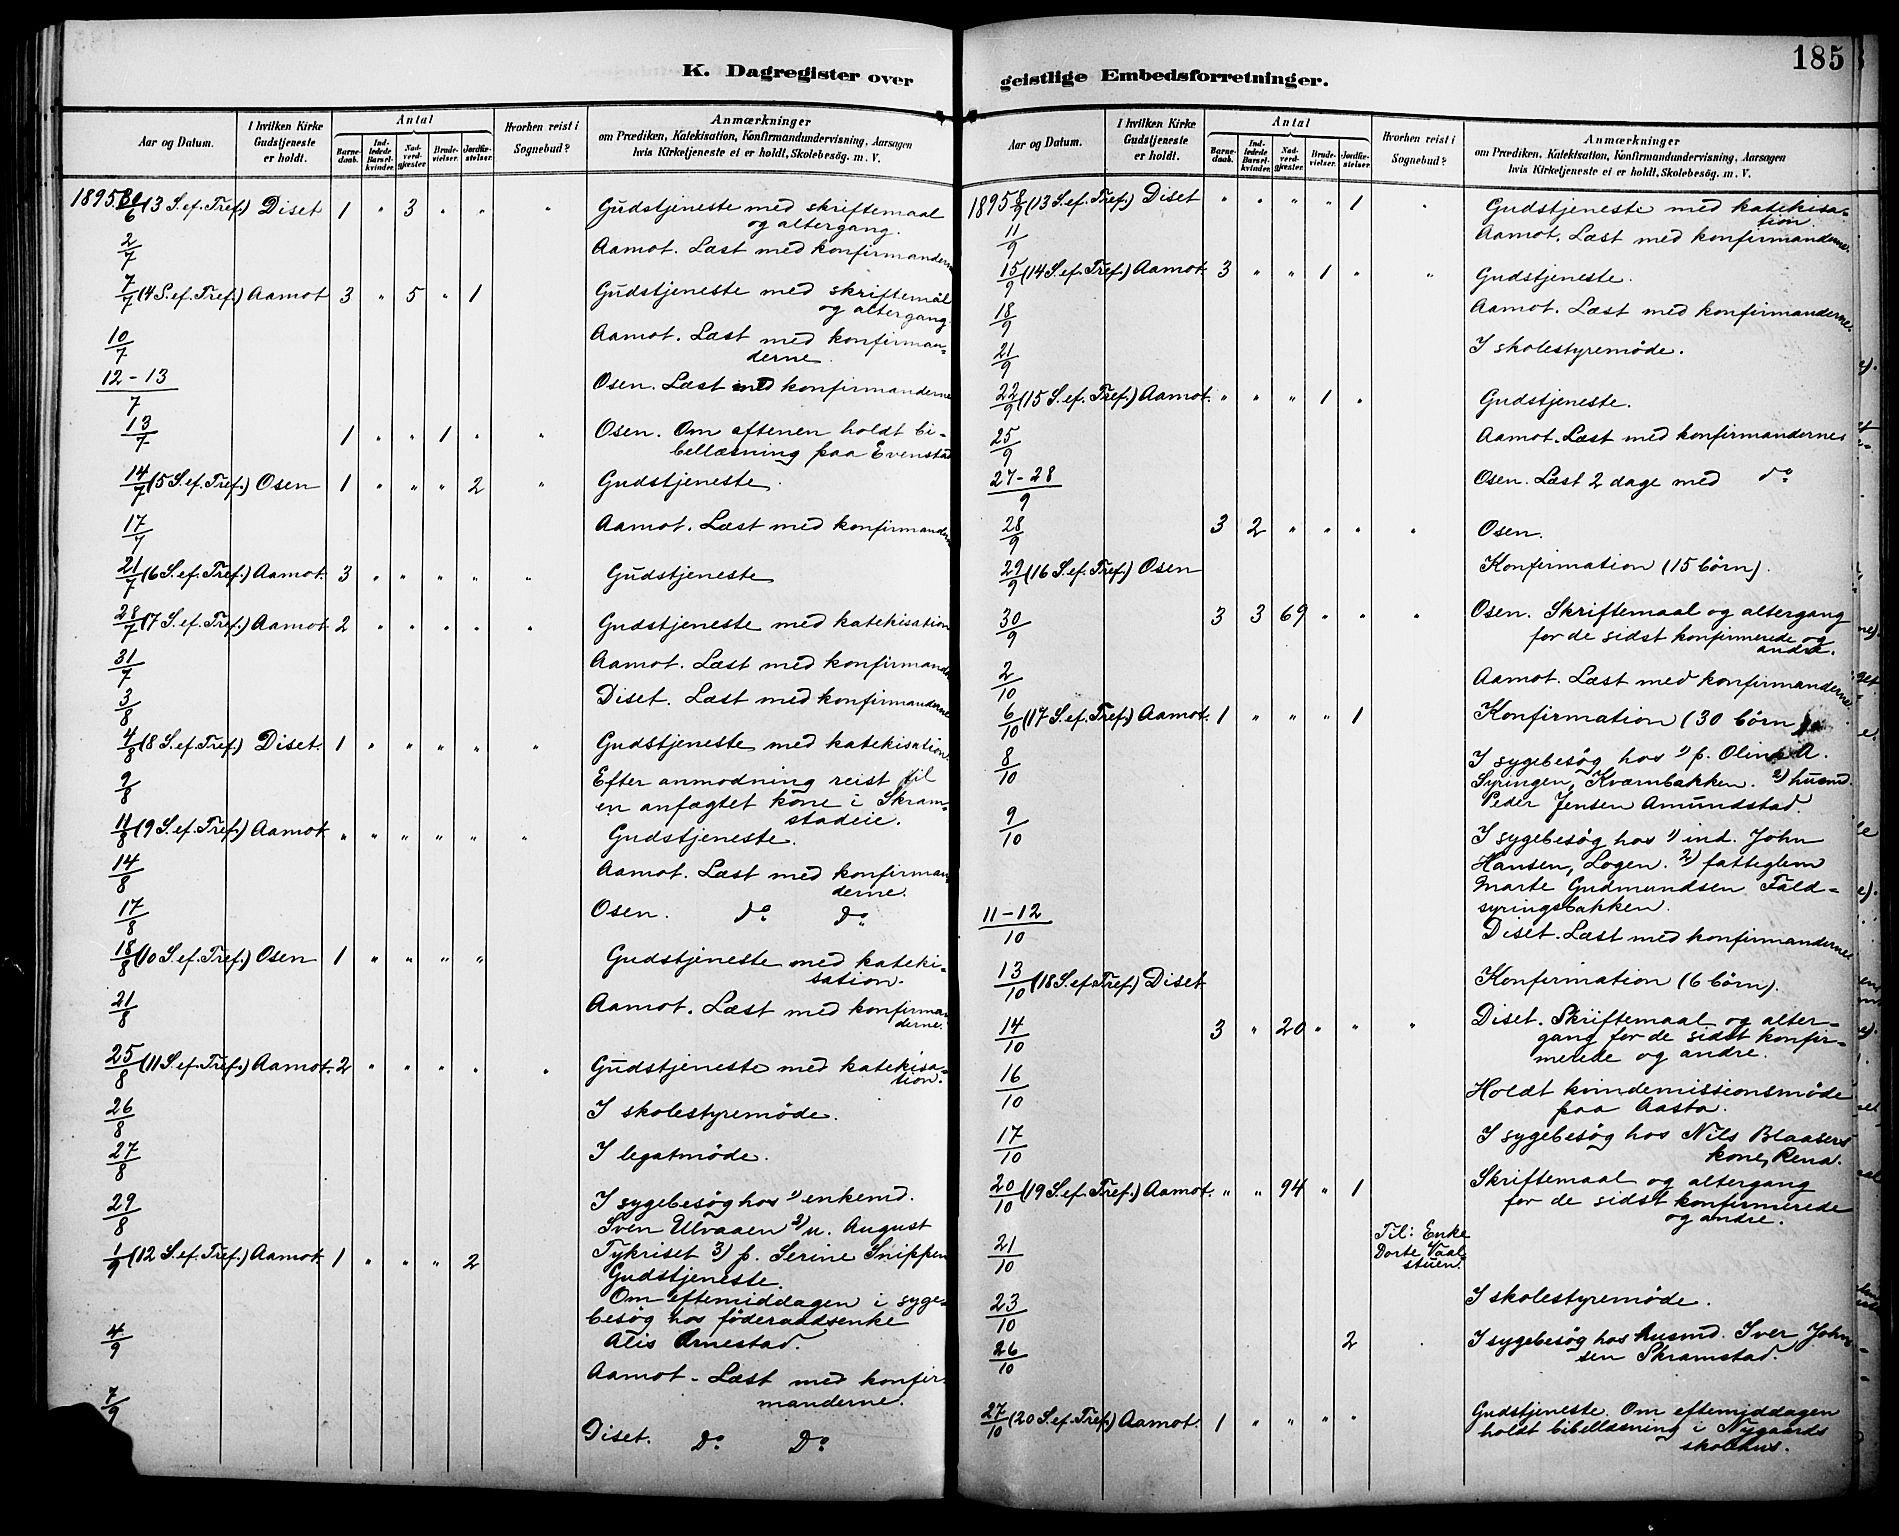 185
K. Dagregister over
geistlige Embedsforretninger.
Aar og Datum.
I hvilken Kirke Gudstjeneste er holdt.
Antal
Barnedaab.
Indledede Barselkvinder.
Nadverdgjester
Brudevielser.
Jordfæstelser.
Hvorhen reist i Sognebud?
Anmærkninger
om Prædiken, Katekisation, Konfirmandundervisning, Aarsagen
hvis Kirketjeneste ei er holdt, Skolebesög. m. V.
1895 30/6 (3 S. ef. Tref.) Diset 1 " 3 " " " Gudstjeneste med skriftemaal
og altergang.
2/7 Aamot. Læst med konfirmanderne
7/7 (4 S. ef. Tref.) Aamot 3 " 5 " 1 Gudstjeneste med skriftemål
og altergang
10/7 Aamot. Læst med konfirman-
derne.
12-13/7 Osen. Læst med konfirmanderne
13/7 1 " " 1 " " Osen. Om aftenen holdt bi-
bellæsning paa Evenstad
14/7 (5 S. ef. Tref.) Osen 1 " " " 2 " Gudstjeneste.
17/7 Aamot. Læst med konfirmanderne
21/7 (6 S. ef. Tref.) Aamot. 3 " " " " " Gudstjeneste
28/7 (7 S. ef. Tref.) Aamot. 2 " " " " " Gudstjeneste med katekisation
31/7 Aamot. Læst med konfirmander
3/8 Diset. Læst med konfirmanderne
4/8 (8 S. ef. Tref.) Diset. 1 " " " " " Gudstjeneste med katekisation.
9/8 Efter anmodning reist til
en anfægtet kone i Skram-
stadeie.
11/8 (9 S. ef. Tref.) Aamot " " " " " " Gudstjeneste.
14/8 Aamot. Læst med konfirman
derne.
17/8 Osen. do do
18/8 (10 S. ef. Tref.) Osen 1 " " " " Gudstjeneste med kateki-
sation.
21/8 Aamot. Læst med konfirman
derne.
25/8 (11 S. ef. Tref.) Aamot. 2 " " " " " Gudstjeneste med katekisa-
tion.
26/8 I skolestyremöde.
27/8 I legatmöde.
29/8 I sygebesög hos 1) enkemd.
Sven Ulvaaen 2) u. August
Tykriset 3) p. Serine Snippen
1/9 (12 S. ef. Tref.) Aamot. 1 " " " 2 Gudstjeneste.
Om eftemiddagen i syge-
besög hos föderaadsenke
Alis Ornestad.
4/9 Aamot. Læst med konfir-
manderne.
7/9 Diset. Do Do
Aar og Datum.
I hvilken Kirke Gudstjeneste er holdt.
Antal
Barnedaab.
Indledede Barselkvinder.
Nadverdgjester
Brudevielser.
Jordfæstelser.
Hvorhen reist i Sognebud?
Anmærkninger
om Prædiken, Katekisation, Konfirmandundervisning, Aarsagen
hvis Kirketjeneste ei er holdt, Skolebesög. m. V.
1895 8/9 (13 S. ef. Tref.) Diset " " " " 1 " Gudstjeneste med katekisa-
tion.
11/9 Aamot. Læst med konfirmanderne.
15/9 (14 S. ef. Tref.) Aamot. 3 " " 1 " " Gudstjeneste.
18/9 Aamot. Læst med konfirmanderne.
21/9 I skolestyremöde.
22/9 (15 S. ef. Tref.) Aamot. " " " 1 " Gudstjeneste.
25/9 Aamot. Læst med konfirmandernes
27-28/9 Osen. Læst 2 dage med do
28/9 3 2 " " " " Osen.
29/9 (16 S. ef. Tref.) Osen Konfirmation (15 börn).
30/9 3 3 69 " " " Osen. Skriftemaal og altergang
for de sidst konfirmerede og
andre.
2/10 Aamot. Læst med konfirmanderne.
6/10 (17 S. ef. Tref.) Aamot. 1 " " " 1 Konfirmation (30 börn)
8/10 I sygebesög hos 1) p. Oline A.
Syringen, Kværnbakken. 2) husmd.
Peder Jensen Amundstad.
9/10 I sygebesög hos 1) ind. John
Hansen, Logen. 2) fatteglem
Marte Gudmundsen Fald-
syringsbakken.
11-12/10 Diset. Læst med konfirmanderne
13/10 (18 S. ef. Tref.) Diset Konfirmation (6 börn).
14/10 3 " 20 " " " Diset. Skriftemaal og alter-
gang for de sidst konfir-
merede og andre.
16/10 Holdt kvindemissionsmöde
paa Aasta.
17/10 I sygebesög hos Nils Blaasers
kone, Rena.
20/10 (19 S. ef. Tref.) Aamot. " " 94 " 1 Skriftemaal og altergang
for de sidst konfirmerede
og andre.
21/10 Til: Enke
Dorte Vaal
stuen.
23/10 I skolestyremöde.
26/10 2 " I sygebesög hos husmd. Iver John
sen Skramstad.
27/10 (20 S. ef. Tref.) Aamot. 1 " " " " Gudstjeneste. Om eftemiddagen
holdt bibellæsning i Nygaards
skolehus.